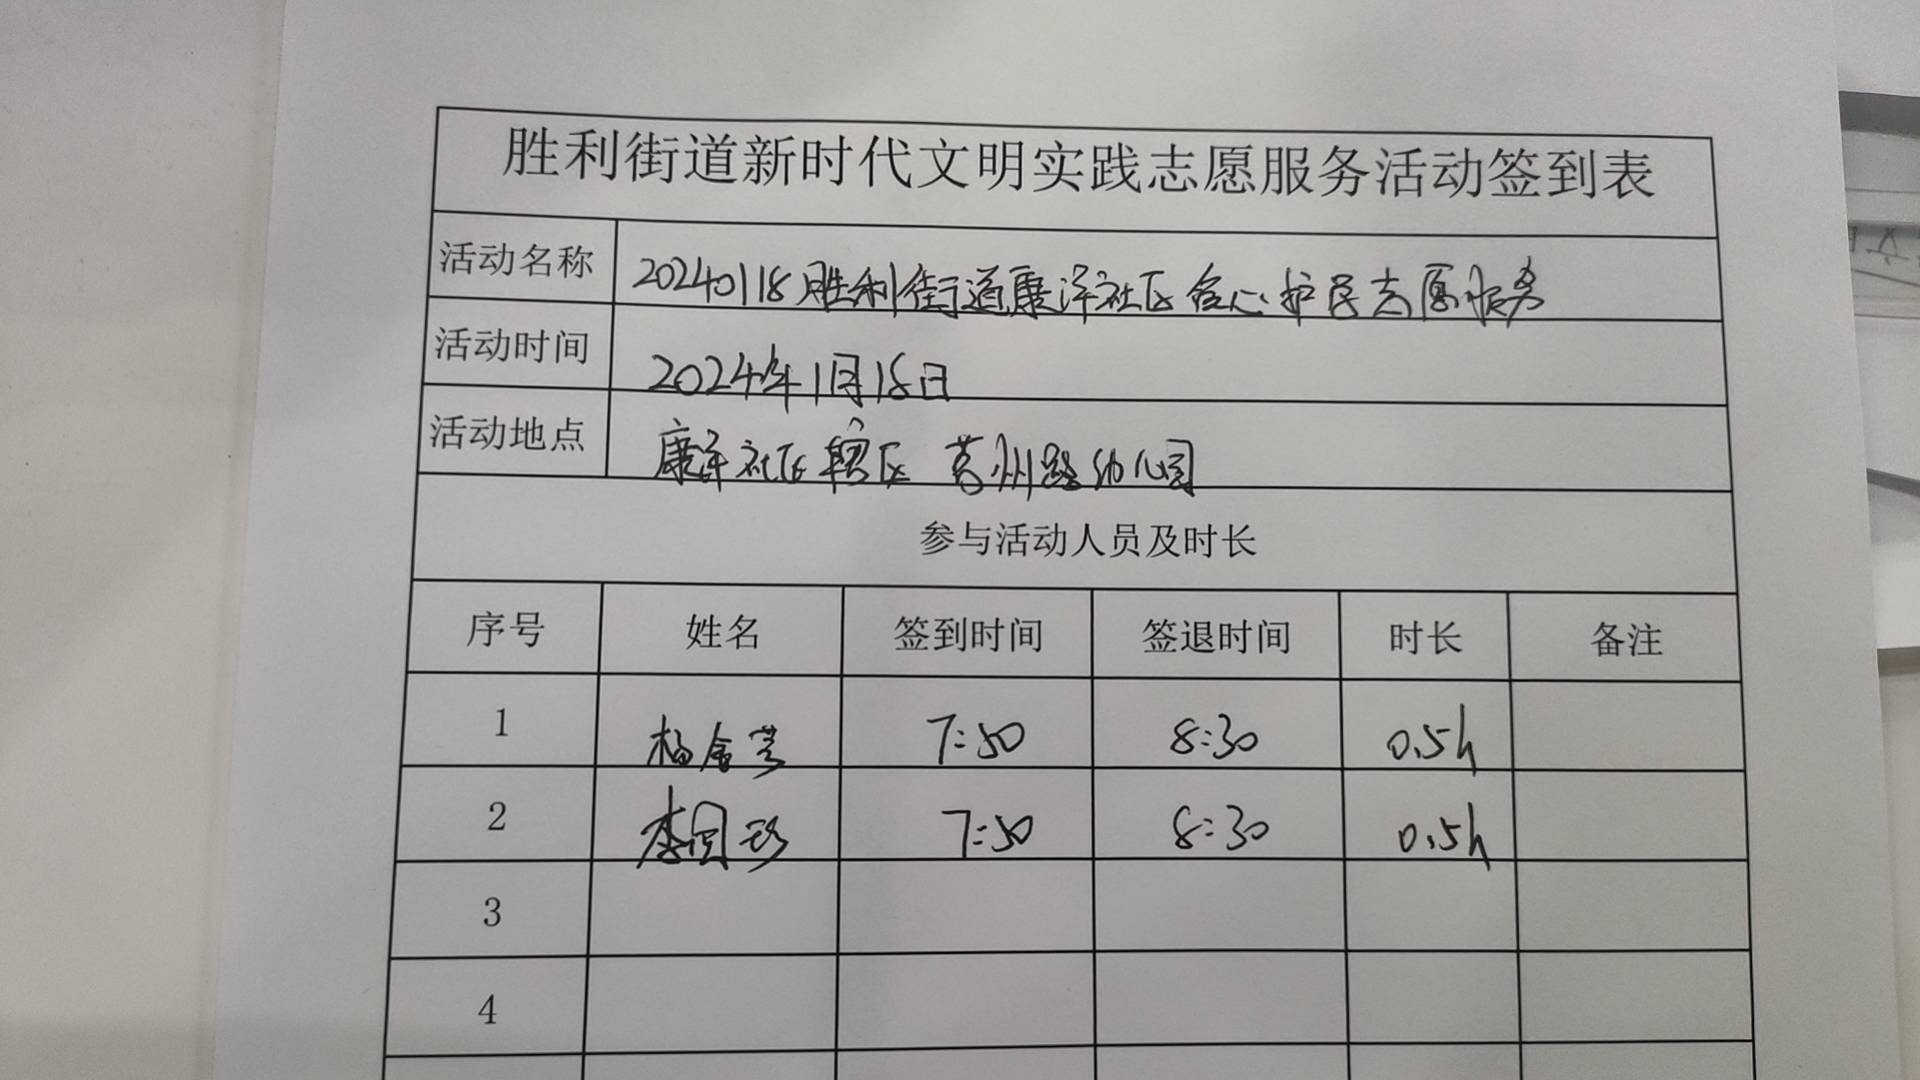 胜利街道新时代文明实践志愿服务活动签到表
活动名称 20240118胜利街道康泽社区合心护民志愿服务
活动时间 2024年1月18日
活动地点 康泽社区辖区 苏州路幼儿园
参与活动人员及时长
序号 姓名 签到时间 签退时间 时长 备注
1 杨金 7:50 8:30 0.5h
2 李 7:50 8:30 0.5h
3
4